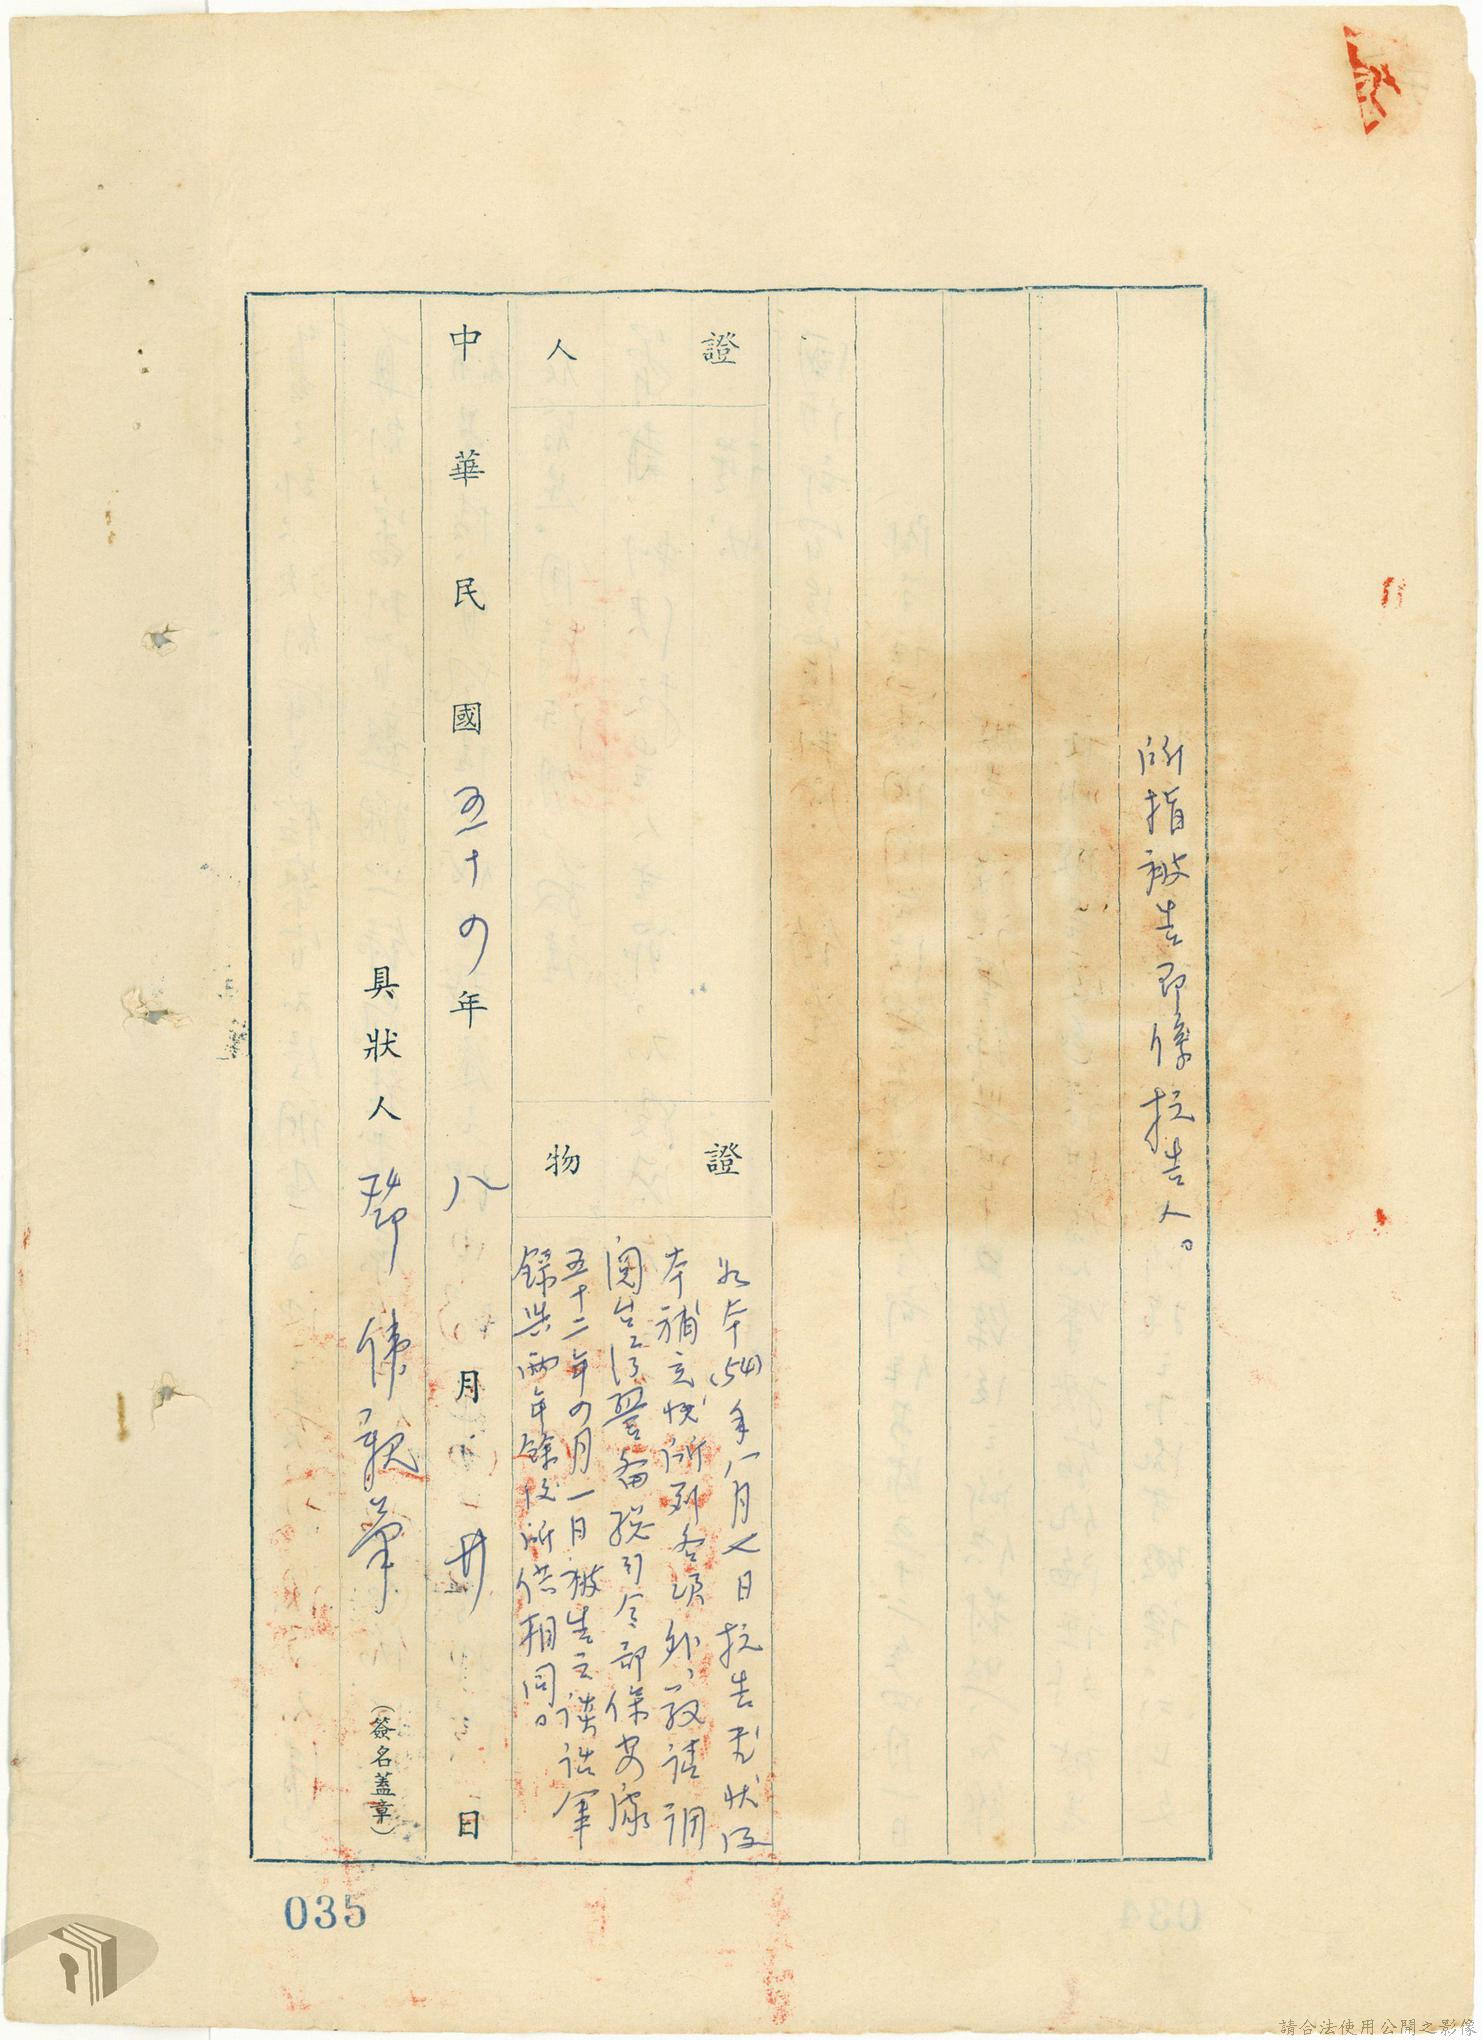 所指被告即係抗告人。
證人
證物
如本(54)年八月七日抗告刑狀及
本補充狀所列各項外、敬請調
閱台灣警備總司令部保安處
五十二年四月一日被告之談話筆
錄与兩年餘後所供相同。
中華民國五十四年八月廿日
具狀人 鄧 親筆 (簽名蓋章)
035
034
請合法使用公開之影像